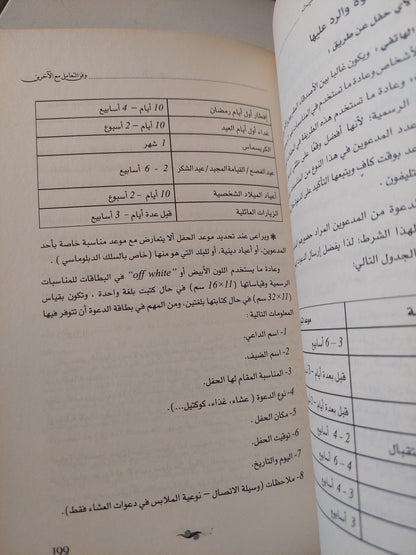 وفن التعامل مع الآخرين
إفطار أول أيام رمضان	10 أيام – 4 أسابيع
غداء أول أيام العيد	10 أيام – 2 أسبوع
الكريسماس	1 شهر
عيد الفصح / القيامة المجيد / عيد الشكر	2 - 6 أسابيع
أعياد الميلاد الشخصية	10 أيام – 2 أسبوع
الزيارات العائلية	قبل عدة أيام – 3 أسابيع
* ويراعى عند تحديد موعد الحفل ألا يتعارض مع موعد مناسبة خاصة بأحد
المدعوين، أو أعياد دينية، أو للبلد التي هو منها (خاص بالسلك الدبلوماسي) .
وعادة ما يستخدم اللون الأبيض أو "off white" في البطاقات للمناسبات
الرسمية وقياساتها (11×16 سم) في حال كتبت بلغة واحدة ، وتكون بقياس
(11×32 سم) في حال كتابتها بلغتين، ومن المهم في بطاقة الدعوة أن تتوفر فيها
المعلومات التالية :
1- اسم الداعي.
2- اسم الضيف.
3- المناسبة المقام لها الحفل.
4- نوع الدعوة ( عشاء، غذاء، كوكتيل...).
5- مكان الحفل.
6- توقيت الحفل.
7- اليوم والتاريخ.
8- ملاحظات (وسيلة الاتصال – نوعية الملابس في دعوات العشاء فقط).
199
والرد عليها
لأي حفل عن طريق ،
الهاتفي ، ويكون غالبا بين الأصدقاء
وعادة ما تستخدم في
وعادة ما تستخدم هذه الطريقة في
الرسمية: لأنها أفضل وقعًا على
عدد المدعوين في هذا النوع من
عد بوقت كاف ويتبعها التأكيد على
تليفون.
دعوة من المدعوين المراد حضورهم
هذا الشرط: لذا يفضل إرسال
الجدول التالي:
3 – 6 أسابيع
قبل بعدة أيام –
قبل بعدة أيام –
2 - 4 أسابيع
4 – 6 أسابيع
3 - 4 أسابيع
3 أسابيع